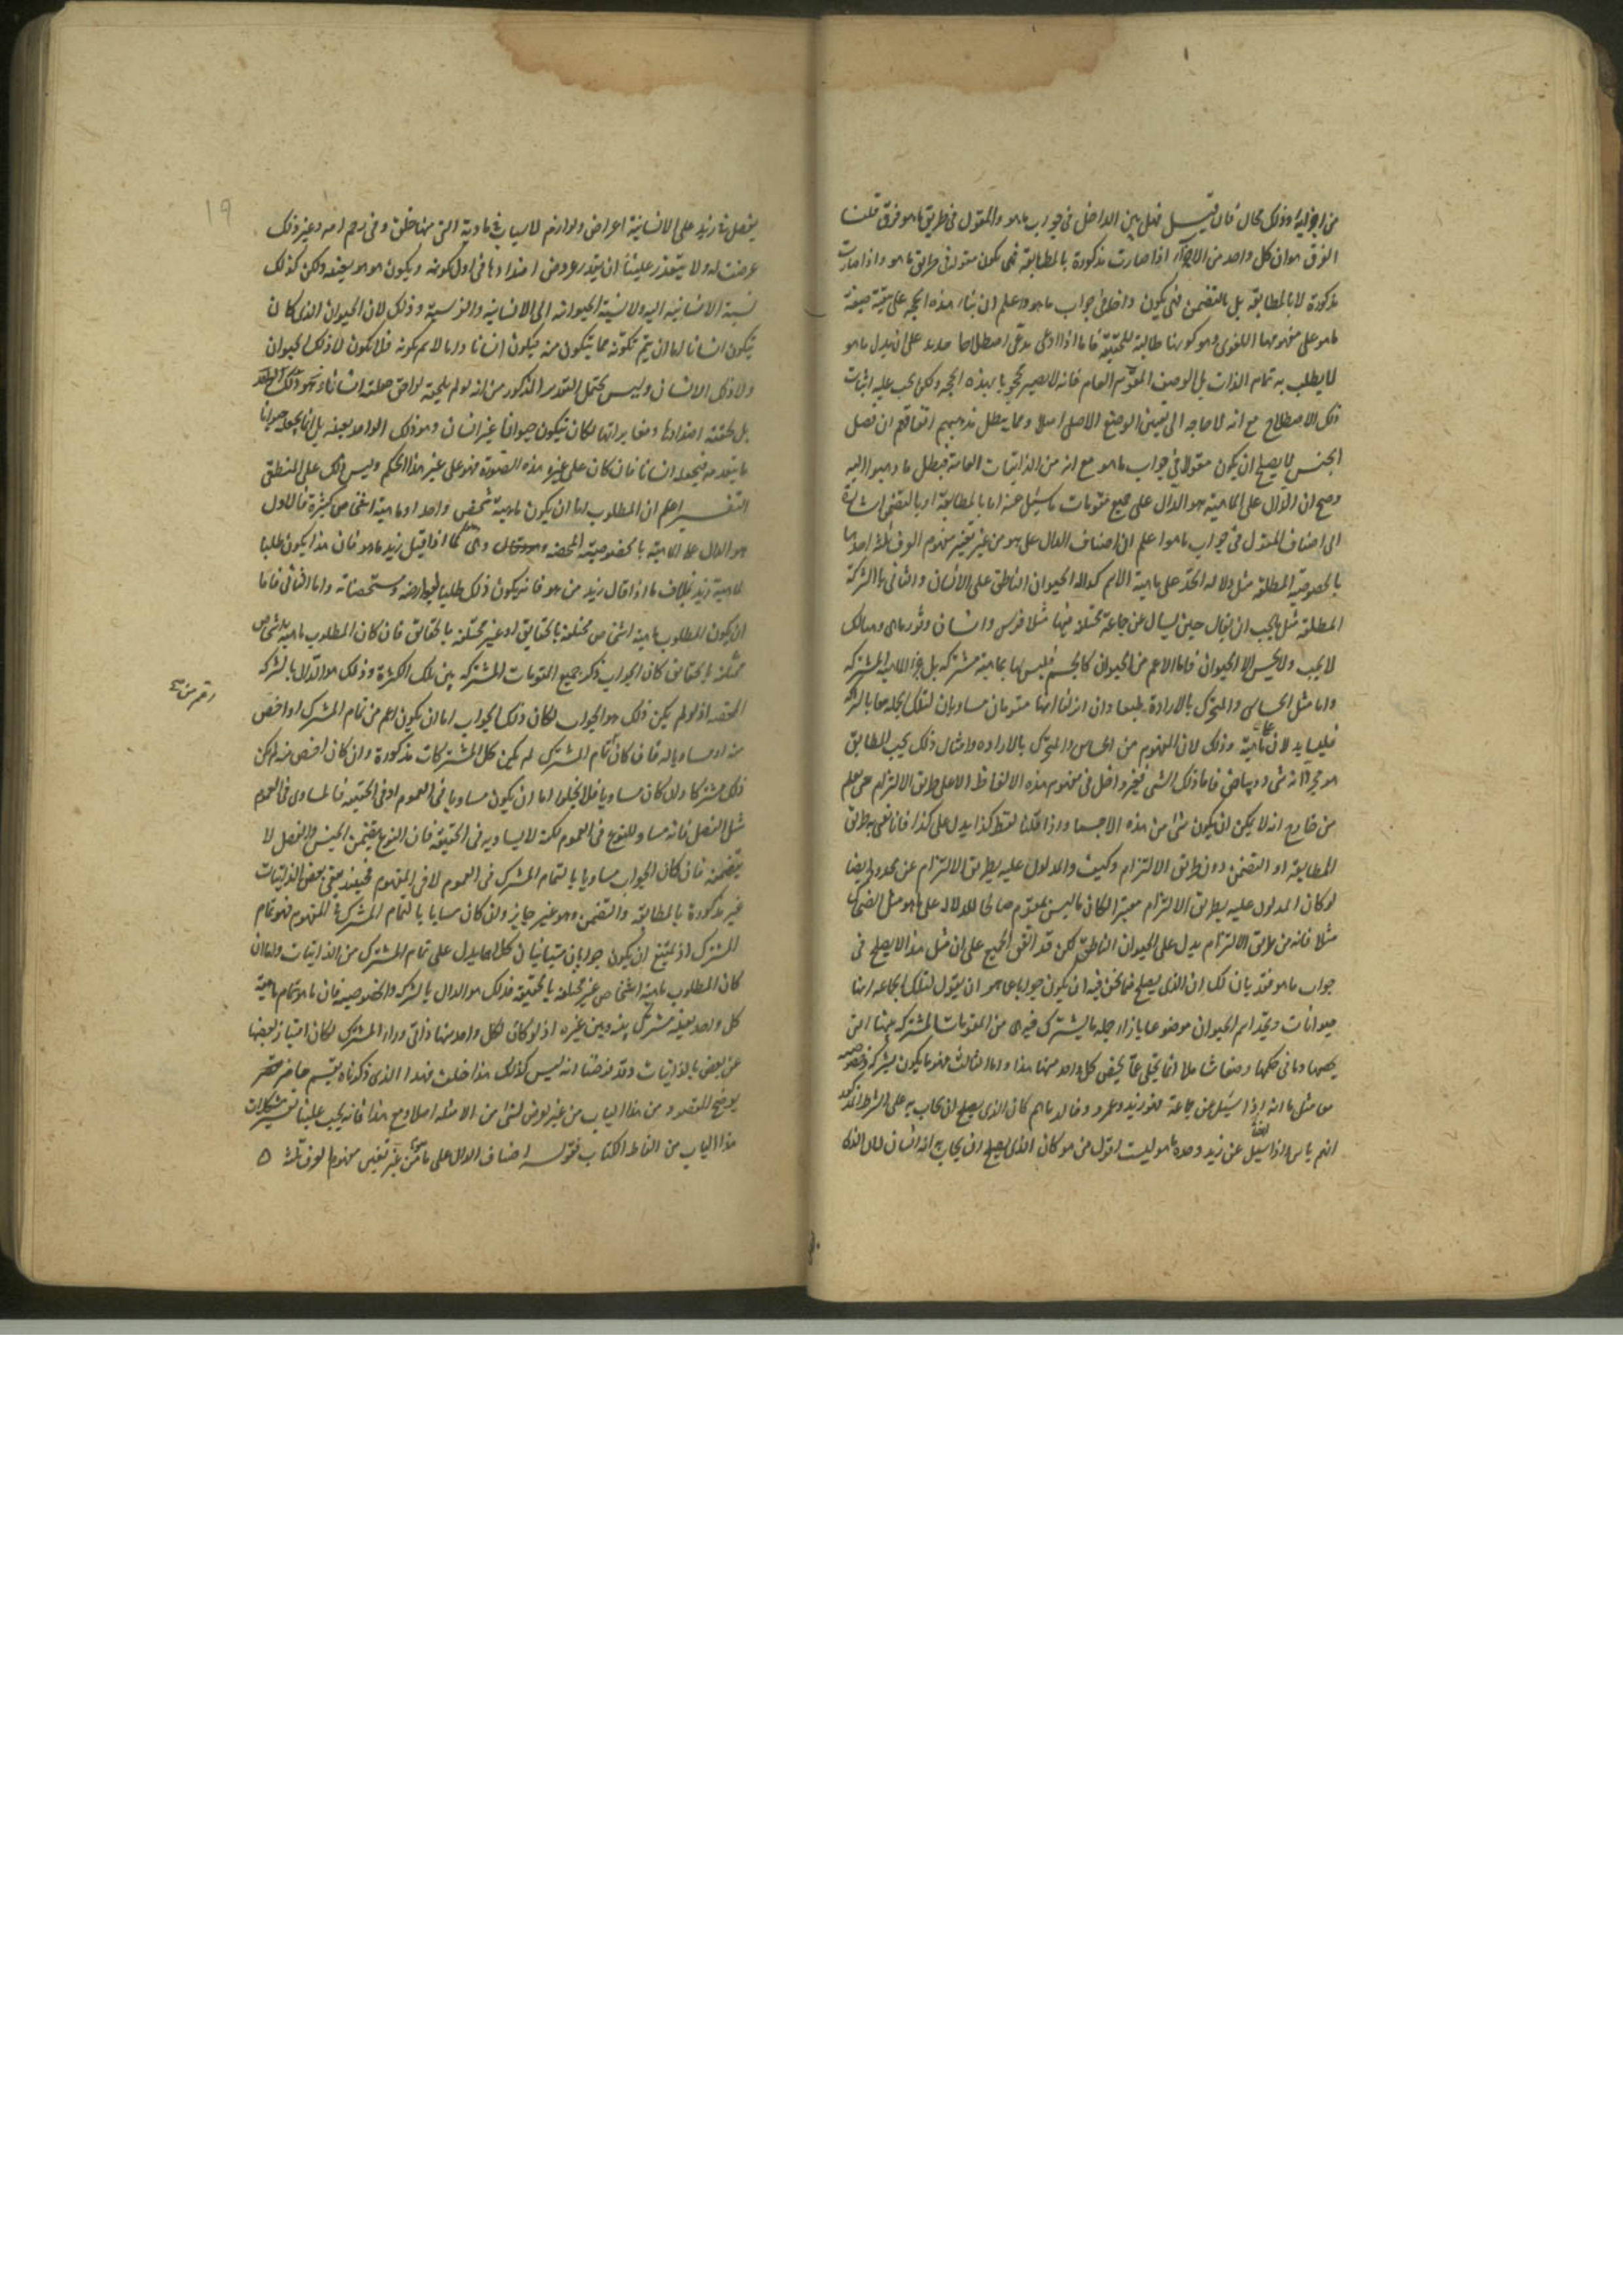 من اجزائه وذلك محال فان قيل فهل بين الداخل في جواب ما هو والمقول في طريق ما هو فرق قلت
الفرق هو ان كل واحد من الاجزاء اذا صارت مذكورة بالمطابقة فهي تكون مقولة في طريق ما هو واذا صارت
مذكورة لا بالمطابقة بل بالتضمن فهي يكون داخلة في جواب ما هو واعلم ان بناء هذه الحجة على بقية صيغة
ما هو على مفهومها اللغوي وهو كونها طالبة للحقيقة فاما اذا ادعى مدعى اصطلاحا جديدا على ان يدل ما هو
لما يطلب به تمام الذات بل الوصف المقوم العام فانه لا يصير محجوجا بهذه الحجة ولكن يجب عليه اثبات
ذلك الاصطلاح مع انه لا حاجة الى تغيير الوضع الاصلي اصلا ومما يبطل مذهبهم اتفاقهم ان فصل
الجنس لا يصلح ان يكون مقولا في جواب ما هو مع انه من الذاتيات العامة فبطل ما ذهبوا اليه
وصح ان الدال على الماهية هو الدال على جميع مقومات ما يسئل عنه اما بالمطابقة او بالتضمن اشارة
الى اصناف المقول في جواب ما هو اعلم ان اصناف الدال على ما هو من غير تغيير مفهوم العرف ثلثة احدها
بالخصوصية المطلقة مثل دلالة الحد على ماهية الاسم كدلالة الحيوان الناطق على الانسان والثاني بالشركة
المطلقة مثل ما يجب ان يقال حين يسال عن جماعة مختلفة فيها مثلا فرس وانسان وثور ما هي وهنالك
لا يجب ولا يحسن الا الحيوان فاما الاعم من الحيوان كالجسم فليس لها بماهية مشتركة بل جزء الماهية المشتركة
واما مثل الحساس والمتحرك بالارادة طبعا وان انزلنا انهما مقومان مساويان لتلك الجملة معا بالشركة
فليسا يدلان على الماهية وذلك لان المفهوم من الحساس والمتحرك بالارادة وامثال ذلك بحسب المطابق
هو مجرد انه شيء ذو بياض فاما ذلك الشيء فغير داخل في مفهوم هذه الالفاظ الا على طريق الالتزام حين يعلم
من خارج انه لا يمكن ان يكون شيء من هذه الا جسما واذا قلنا لفظ كذا يدل على كذا فانا نعني به طريق
المطابقة او التضمن دون طريق الالتزام وكيف والمدلول عليه بطريق الالتزام غير محدود وايضا
لو كان المدلول عليه بطريق الالتزام معتبرا لكان ما ليس بمقوم صالحا للدلالة على ما هو مثل الضحاك
مثلا فانه من طريق الالتزام يدل على الحيوان الناطق لكن قد اتفق الجميع على ان مثل هذا لا يصلح في
جواب ما هو فقد بان لك ان الذي يصلح فيما نحن فيه ان يكون جوابا عما هو ان يقول لتلك الجماعة انها
حيوانات وتجد اسم الحيوان موضوعا بازاء جملة ما يشترك فيه هي من المقومات المشتركة بينها التي
يخصها وما في حكمها وضعا شاملا انما يخلى عما يخص كل واحد منها هذا واما الثالث فهو ما يكون بشركة وخصوصية
معا مثل ما انه اذا سئل عن جماعة هم زيد وعمرو وخالد ما هم كان الذي يصلح ان يجاب به على الشرط المذكور
انهم اناس واذا سئل ايضا عن زيد وحده ما هو ليست اقول من هو كان الذي يصلح ان يجاب به انه انسان لان الذي
يفصل في زيد على الانسانية اعراض ولوازم لاسباب في مادته التي منها خلق وفي رحم امه وغير ذلك
عرضت له ولا يتعذر علينا ان نقدر عروض اضدادها في اول كونه ويكون هو هو بعينه ولكن كذلك
نسبة الانسانية اليه ولا نسبة الحيوانية الى الانسانية والفرسية وذلك لان الحيوان الذي كان
يتكون انسانا اما ان يتم تكونه مما يتكون منه فيكون انسانا واما لا يتم كونه فلا يكون لا ذلك الحيوان
ولا ذلك الانسان وليس يحتمل التقدير المذكور من انه لو لم يلحقه لواحق جعلته انسانا
بل لحقته اضدادها ومغايراتها لكان يتكون حيوانا غير انسان وهو ذلك الواحد بعينه بل انما يجعله حيوانا
ما يتقدمه فيجعله انسانا فان كان على غير هذه الصورة فهو على غير هذا الحكم وليس ذلك على المنطقي
التفسير اعلم ان المطلوب اما ان يكون ماهية شخص واحد او ماهية اشخاص كثيرة فالاول
هو الدال على الماهية بالخصوصية المحضة كما اذا قيل زيد ما هو فان هذا يكون طلبا
لماهية زيد بخلاف ما اذا قال زيد من هو فانه يكون ذلك طلبا لعوارضه ومشخصاته واما الثاني فاما
ان يكون المطلوب ماهية اشخاص مختلفة بالحقايق او غير مختلفة بالحقايق فان كان المطلوب ماهية اشخاص
مختلفة بالحقايق كان الجواب ذكر جميع المقومات المشتركة بين تلك الكثرة وذلك هو الدال بالشركة
المحضة اذ لو لم يكن ذلك هو الجواب لكان ذلك الجواب اما ان يكون اعم من تمام المشترك او اخص
منه او مساويا له فان كان تمام المشترك لم يكن كل المشتركات مذكورة وان كان اخص منه لم يكن
ذلك مشتركا وان كان مساويا فلا يخلو اما ان يكون مساويا في العموم او في الحقيقة فالمساوي في العموم
مثل الفصل فانه مساو للنوع في العموم لكنه لا يساويه في الحقيقة فان النوع يتضمن الجنس والفصل لا
يتضمنه فان كان الجواب مساويا بالتمام المشترك في العموم لا في المفهوم فحينئذ يبقى بعض الذاتيات
غير مذكورة بالمطابقة والتضمن وهو غير جايز وان كان مساويا بالتمام المشترك في المفهوم فهو تمام
المشترك اذ يمتنع ان يكون جوابان متباينان كلاهما يدل على تمام المشترك من الذاتيات واما ان
كان المطلوب ماهية اشخاص غير مختلفة بالحقيقة فذلك هو الدال بالشركة والخصوصية فان ما هو تمام ماهية
كل واحد بعينه مشترك بينه وبين غيره اذ لو كان لكل واحد منها ذاتي وراء المشترك لكان امتياز بعضها
عن بعض بالذاتيات وقد فرضنا انه ليس كذلك هذا خلف فهذا الذي ذكرناه تقسيم حاضر مختصر
يوضح المقصود من هذا الباب من غير تعرض لشيء من الامثلة اصلا ومع هذا فانه يجب علينا تفسير مشكلات
هذا الباب من الفاظ الكتاب فقوله اصناف الدال على ما هو من غير تغيير مفهوم العرف ثلثة